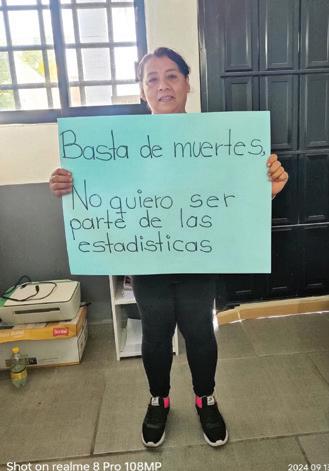 Basta de muertes,
No quiero ser
parte de las
estadisticas
Shot on realme 8 Pro 108MP